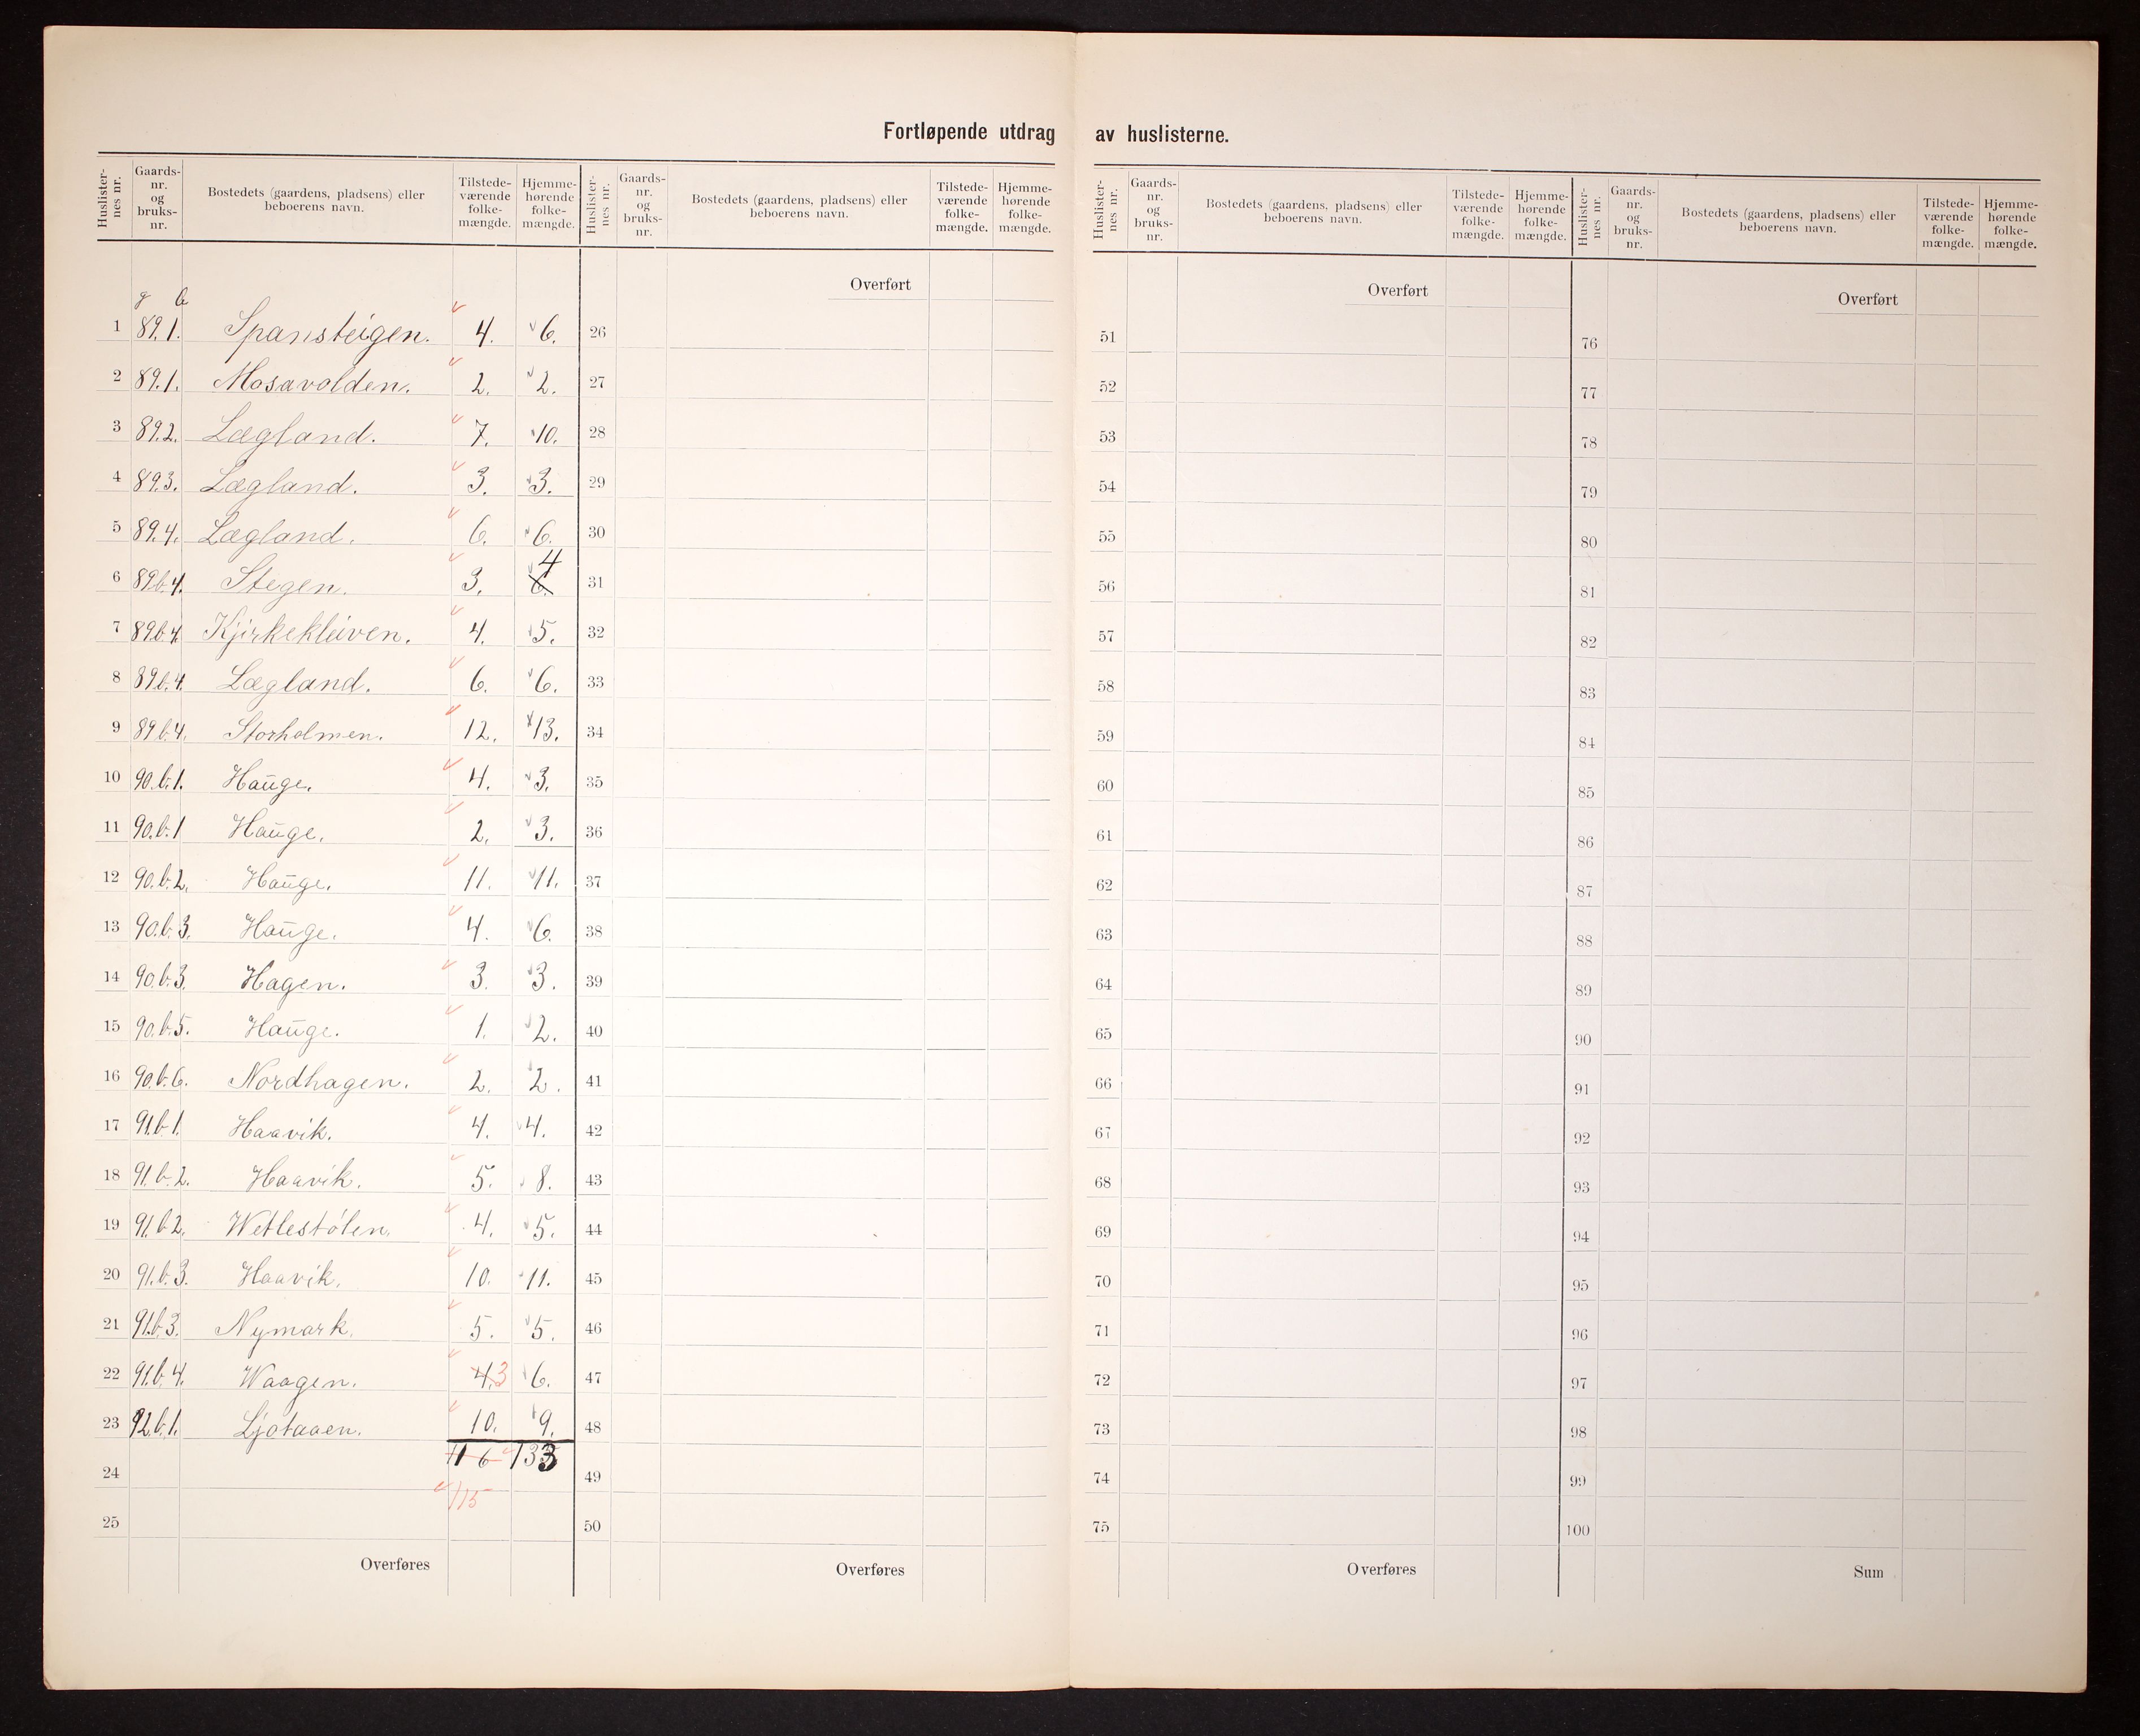 Fortløpende utdrag av huslisterne.
Huslisternes nr. Gaards-nr. og bruks-nr. Bostedets (gaardens, pladsens) eller beboerens navn. Tilstede-værende folke-mængde. Hjemme-hørende folke-mængde.
g b
1 89.1. Spansteigen. 4. 6.
2 89.1. Mosavolden. 2. 2.
3 89.2. Lægland. 7. 10.
4 89.3. Lægland. 3. 3.
5 89.4. Lægland. 6. 6.
6 89.b.4. Stegen. 3. 6. 4
7 89.b.4. Kjirkekleiven. 4. 5.
8 89.b.4. Lægland. 6. 6.
9 89.b.4. Storholmen. 12. 13.
10 90.b.1. Hauge. 4. 3.
11 90.b.1 Hauge. 2. 3.
12 90.b.2. Hauge. 11. 11.
13 90.b.3. Hauge. 4. 6.
14 90.b.3. Hagen. 3. 3.
15 90.b.5. Hauge. 1. 2.
16 90.b.6. Nordhagen. 2. 2.
17 91.b.1. Haavik. 4. 4.
18 91.b.2. Haavik. 5. 8.
19 91.b.2. Wetlestølen. 4. 5.
20 91.b.3. Haavik. 10. 11.
21 91.b.3. Nymark. 5. 5.
22 91.b.4. Waagen. 4. 3 6.
23 92.b.1. Ljotaaen. 10. 9.
116 133
24
115
25
Overføres
Huslisternes nr. Gaards-nr. og bruks-nr. Bostedets (gaardens, pladsens) eller beboerens navn. Tilstede-værende folke-mængde. Hjemme-hørende folke-mængde.
Overført
26
27
28
29
30
31
32
33
34
35
36
37
38
39
40
41
42
43
44
45
46
47
48
49
50
Overføres
Huslisternes nr. Gaards-nr. og bruks-nr. Bostedets (gaardens, pladsens) eller beboerens navn. Tilstede-værende folke-mængde. Hjemme-hørende folke-mængde.
Overført
51
52
53
54
55
56
57
58
59
60
61
62
63
64
65
66
67
68
69
70
71
72
73
74
75
Overføres
Huslisternes nr. Gaards-nr. og bruks-nr. Bostedets (gaardens, pladsens) eller beboerens navn. Tilstede-værende folke-mængde. Hjemme-hørende folke-mængde.
Overført
76
77
78
79
80
81
82
83
84
85
86
87
88
89
90
91
92
93
94
95
96
97
98
99
100
Sum